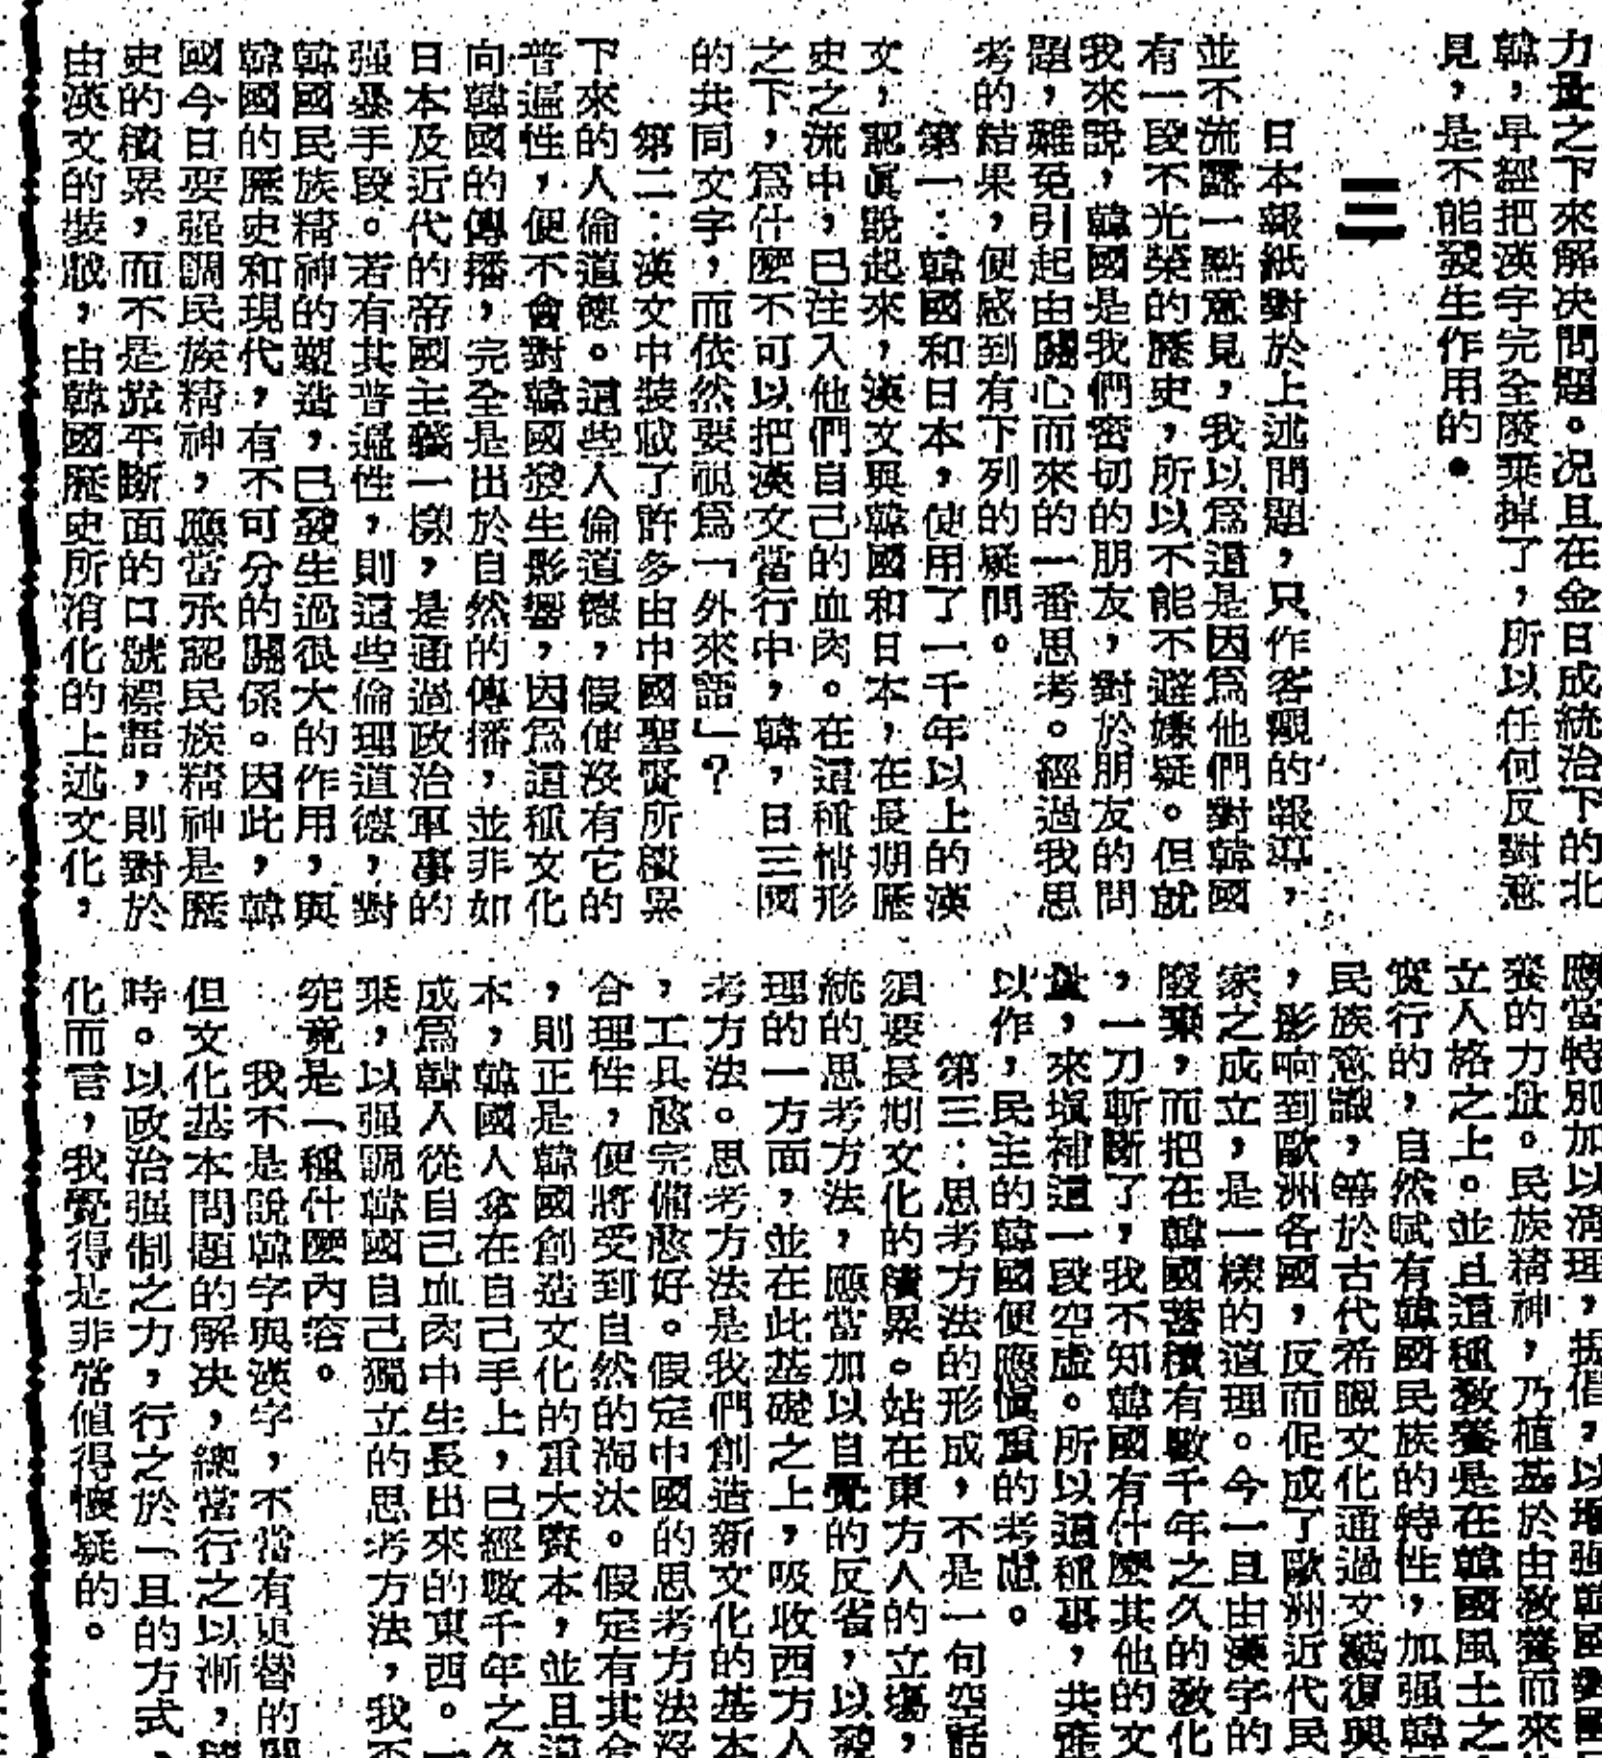 力量之下來解决問題。况且在金日成統治下的北
韓，早經把漢字完全廢棄掉了，所以任何反對意
見，是不能發生作用的。
三
日本報紙對於上述問題，只作客觀的報導，
並不流露一點意見，我以爲這是因爲他們對韓國
有一段不光榮的歷史，所以不能不避嫌疑。但就
我來說，韓國是我們密切的朋友，對於朋友的問
題，難免引起由關心而來的一番思考。經過我思
考的結果，便感到有下列的疑問。
第一：韓國和日本，使用了一千年以上的漢
文，認眞說起來，漢文與韓國和日本，在長期歷
史之流中，已注入他們自己的血肉。在這種情形
之下，爲什麼不可以把漢文當行中，韓，日三國
的共同文字，而依然要視爲「外來語」？
第二：漢文中裝載了許多由中國聖賢所積累
下來的人倫道德。這些人倫道德，假使沒有它的
普遍性，便不會對韓國發生影響，因爲這種文化
向韓國的傳播，完全是出於自然的傳播，並非如
日本及近代的帝國主義一樣，是通過政治軍事的
强暴手段。若有其普遍性，則這些倫理道德，對
韓國民族精神的塑造，已發生過很大的作用，與
韓國的歷史和現代，有不可分的關係。因此，韓
國今日要强調民族精神，應當承認民族精神是歷
史的積累，而不是靠平斷面的口號標語，則對於
由漢文的裝載，由韓國歷史所消化的上述文化，
應當特別加以淸理，提倡，以增强韓國
養的力量。民族精神，乃植基於由敎養而來
立人格之上。並且這種敎養是在韓國風土之
實行的，自然賦有韓國民族的特性，加强韓
民族意識，等於古代希臘文化通過文藝復興
，影响到歐洲各國，反而促成了歐洲近代民
家之成立，是一樣的道理。今一旦由漢字的
廢棄，而把在韓國蓄積有數千年之久的敎化
，一刀斬斷了，我不知韓國有什麼其他的文
量，來塡補這一段空虛。所以這種事，共產
以作，民主的韓國便應愼重的考慮。
第三：思考方法的形成，不是一句空話
須要長期文化的積累。站在東方人的立場，
統的思考方法，應當加以自覺的反省，以
理的一方面，並在此基礎之上，吸收西方人
考方法。思考方法是我們創造新文化的基本
，工具愈完備愈好。假定中國的思考方法沒
合理性，便將受到自然的淘汰。假定有其合
，則正是韓國創造文化的重大資本，並且
本，韓國人拿在自己手上，已經數千年之久
成爲韓人從自己血肉中生長出來的東西。一
棄，以强調韓國自己獨立的思考方法，我不
究竟是一種什麼內容。
我不是說韓字與漢字，不當有更替的
但文化基本問題的解决，總當行之以漸，
時。以政治强制之力，行之於一旦的方式，
化而言，我覺得是非常値得懷疑的。